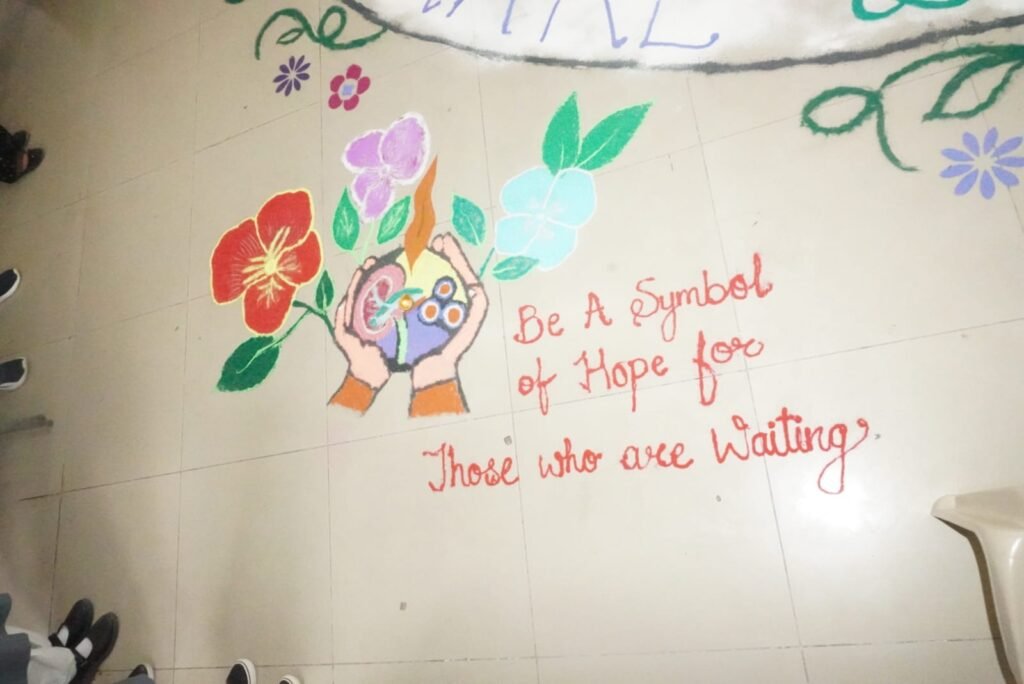 Be A Symbol
of Hope for
Those who are Waiting